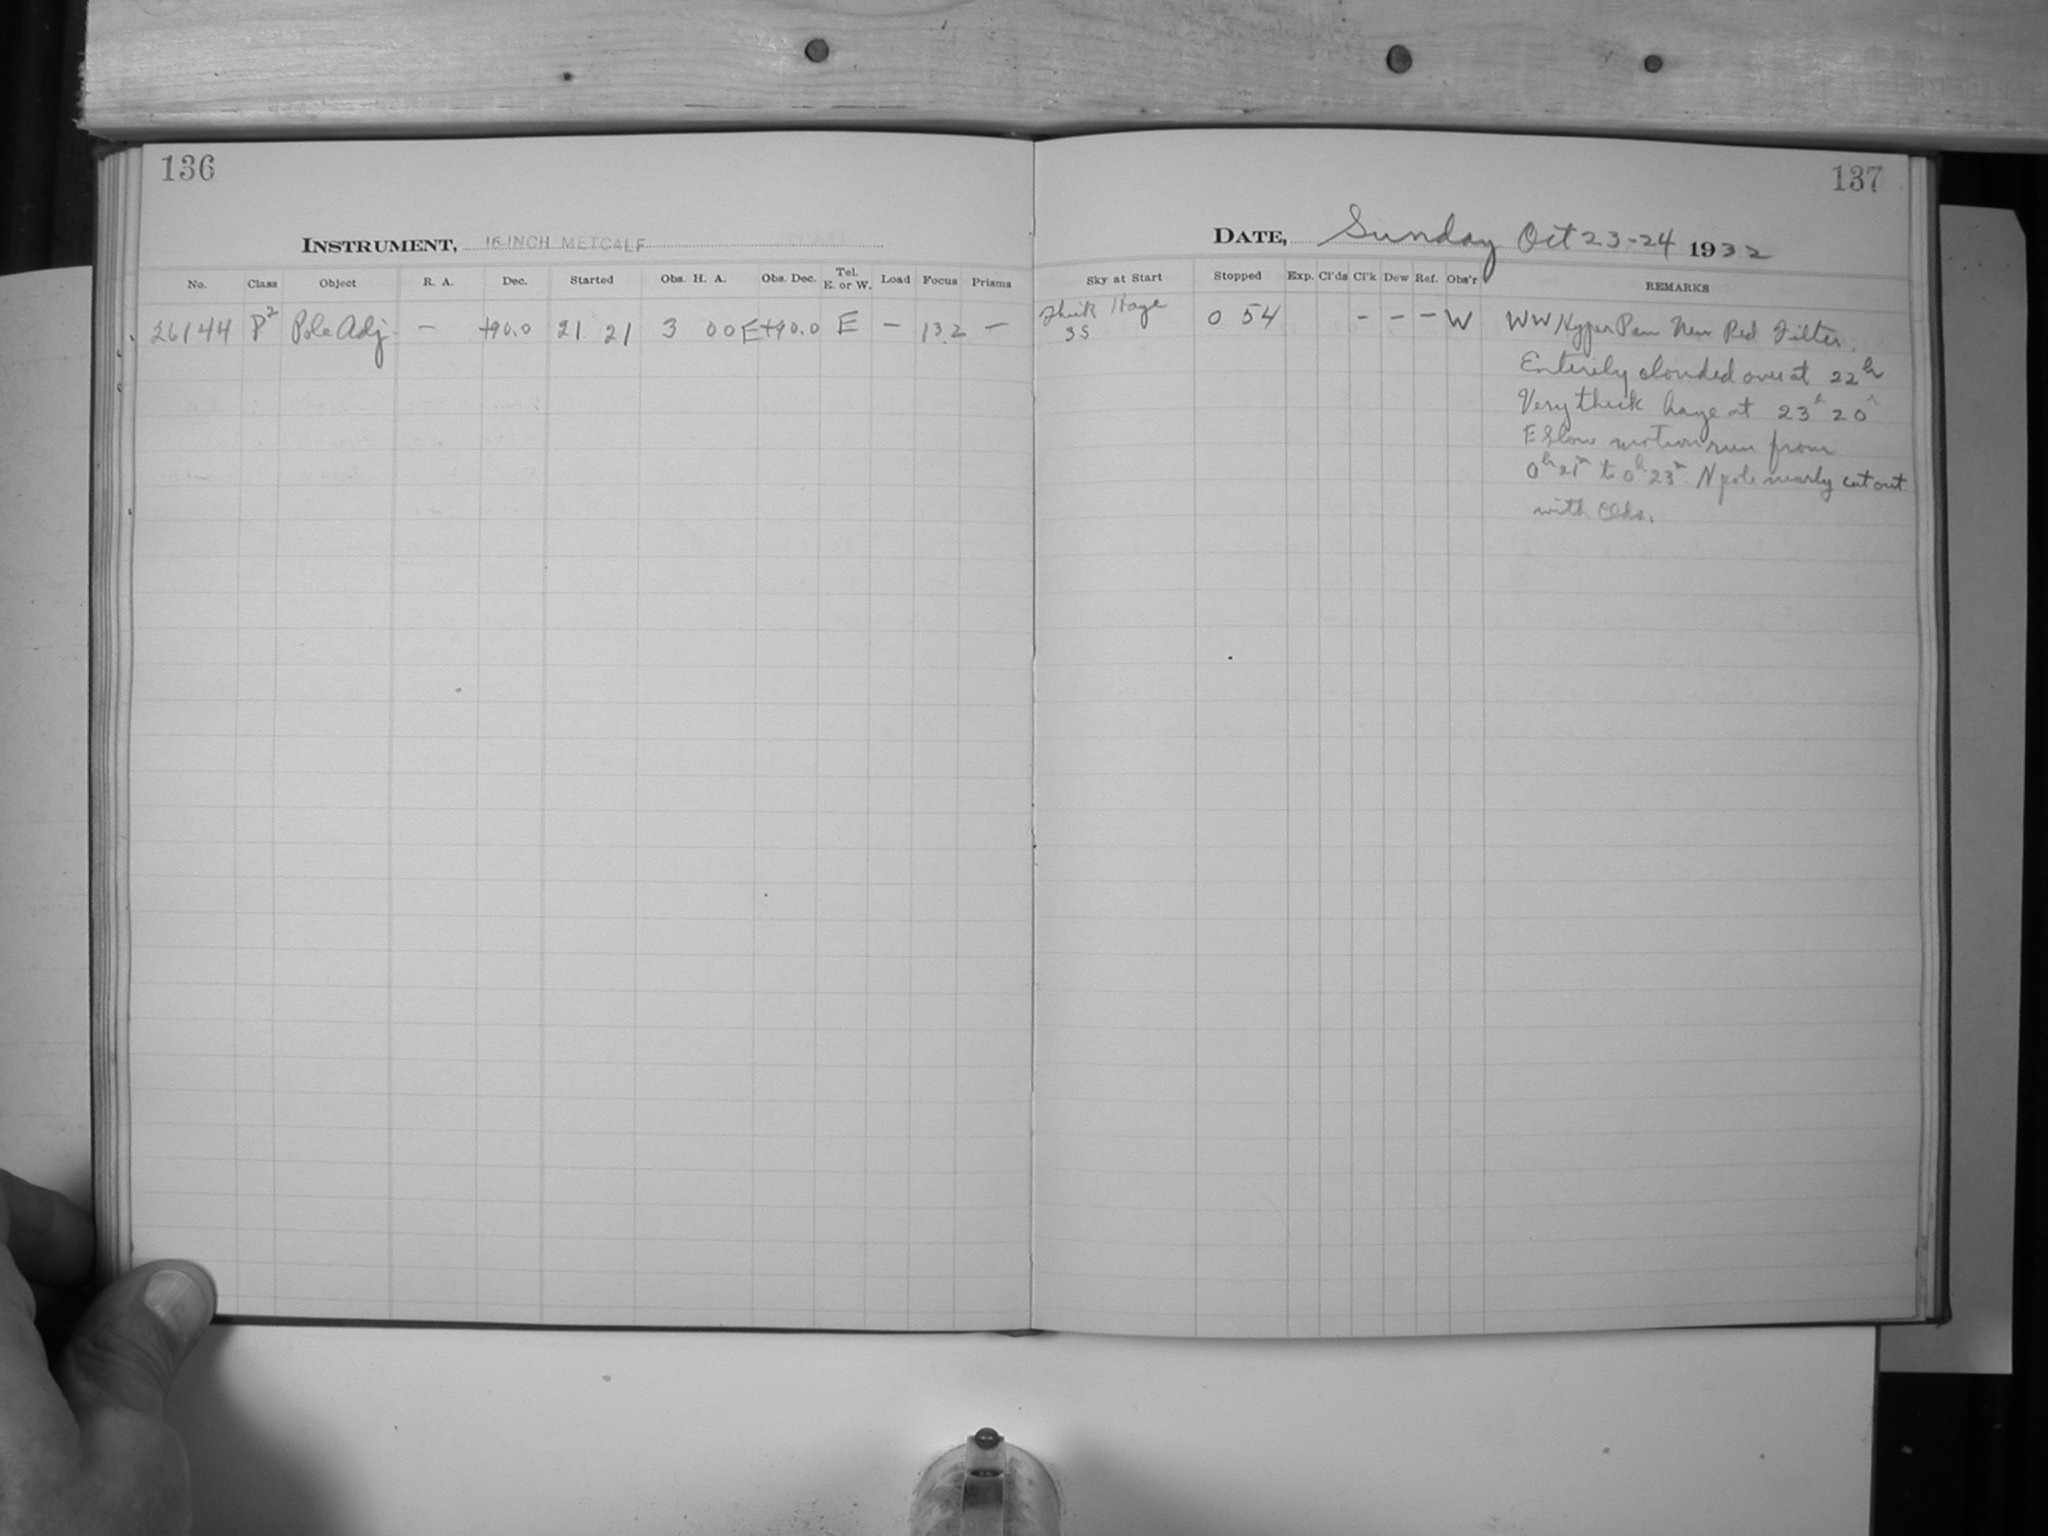 136
137
INSTRUMENT, 16-INCH METCALF
DATE, Sunday Oct 23-24 1932
No. Class Object R. A. Dec. Started Obs. H. A. Obs. Dec. Tel. E. or W. Load Focus Prisms Sky at Start Stopped Exp. Cl'ds Cl'k Dew Ref. Obs'r REMARKS
26144 P2 Pole Adj. — +90.0 21 21 3 00 E +90.0 E — 13.2 — Thick Haze 0 54 - - - W WW Hyper Pan New Red Filter.
3S
Entirely clouded over at 22h
Very thick haze at 23h 20
E Slow motion run from
0h 21m to 0h 23m N pole nearly cut out
with Clds.